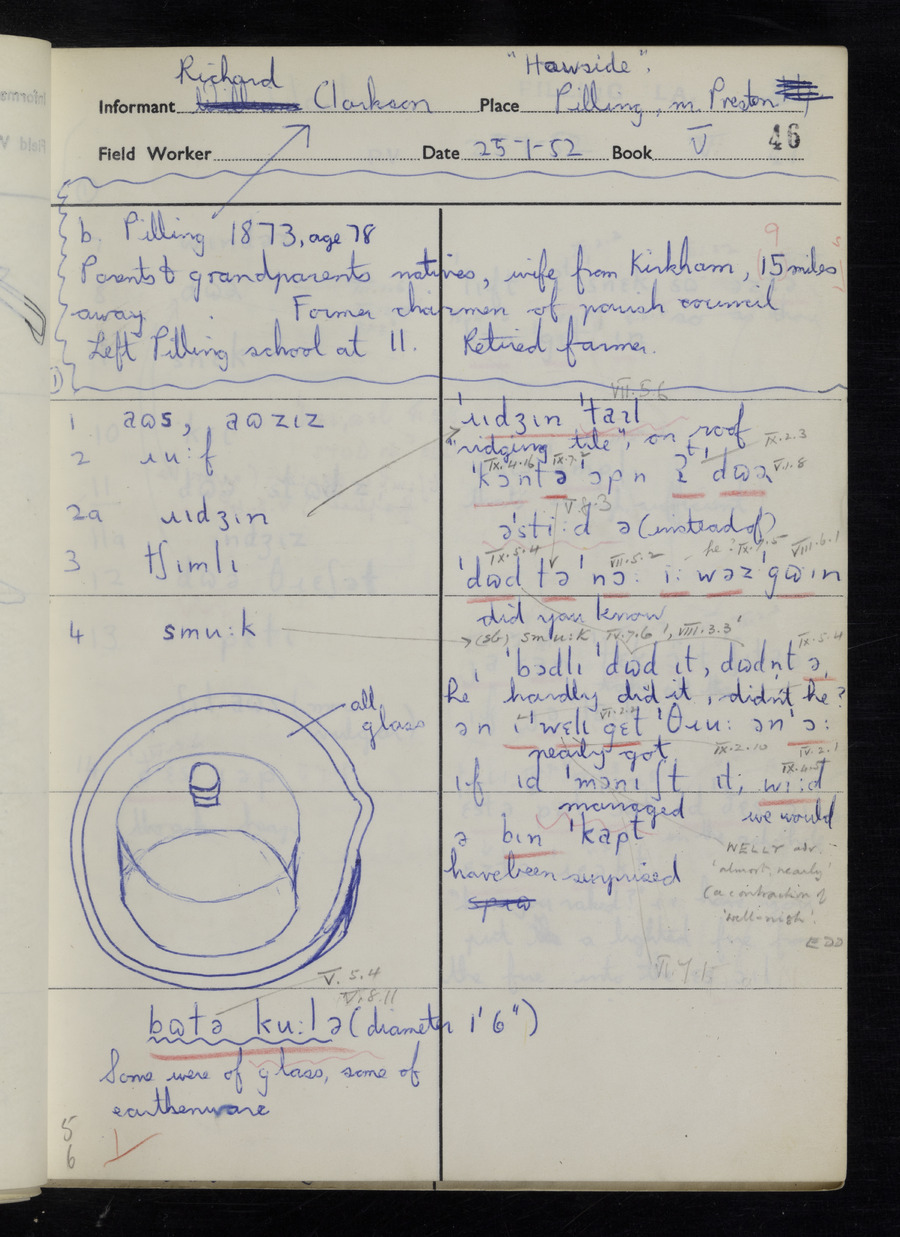 Richard "Hawside".
Informant Clarkson Place Pilling, nr. Preston
Field Worker Date 25-1-52 Book V 46
b. Pilling 1873, age 78
9
Parents & grandparents natives, wife from Kirkham, 15 miles
away. Former chairmen of parish council
Left Pilling school at 11. Retired farmer.
1
1 aɷs, aɷzɪz
2 ɹu:f
2a ɹɪdʒɪn
3 tʃimlɪ
4 smu:k
all
glass
V.5.4
V.8.11
bɷtə ku:lə (diameter 1' 6")
Some were of glass, some of
earthenware
5
6
VII.5.6
'ɹɪdʒɪn 'taɪl
"ridging tile", on roof
IX.2.3
V.1.8
V.8.3
ə'sti:d ə (instead of)
IX.5.4 VII.5.2 he? VIII.6.1
'dɷd tə 'nɔ: i: wəz 'gɷɪn
did you know
(sb) smu:k IV.7.6', VIII.3.3'
IX.5.4
i 'bədlɪ 'dɷd ɪt, dɷdnt ə,
he hardly did it, didn't he?
ən i 'welɪ get 'θɹu: ən' ə:
nearly got
IX.2.10 IV.2.1
if id 'manɪʃt it, wi:d
managed we would
ə bɪn 'kapt
have been surprised
WELLY adv. -
'almost, nearly'
(a contraction of
'well-nigh'.
EDD